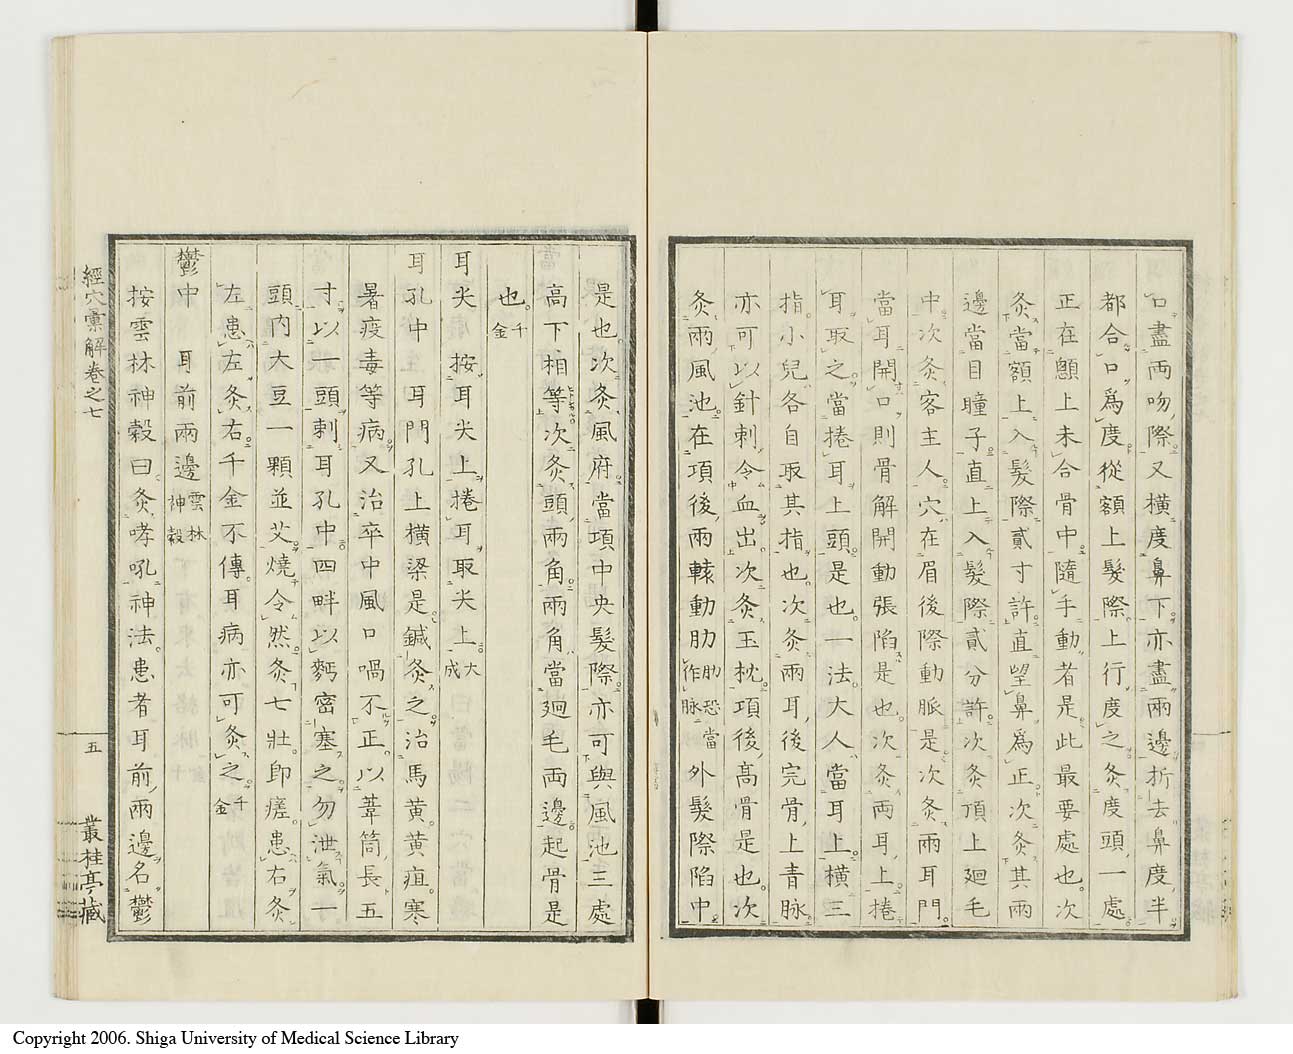 口盡両吻際又横度鼻下亦盡兩邊折去鼻度半
都合口為度從額上髮際上行度之灸度頭一處
正在顖上未合骨中隨手動者是此最要處也次
灸當額上入髮際貳寸許直望鼻為正次灸其兩
邊當目瞳子直上入髮際貳分許次灸頂上廻毛
中次灸客主人穴在眉後際動脈是次灸兩耳門
當耳開口則骨解開動張陷是也次灸両耳上捲
耳取之當捲耳上頭是也一法大人當耳上横三
指小兒各自取其指也次灸兩耳後完骨上青脉
亦可以針刺令血出次灸玉枕項後高骨是也次
灸兩風池在項後兩轅動肋肋恐當作脉外髮際陷中
是也次灸風府當項中央髮際亦可與風池三處
高下相等次灸頭兩角兩角當廻毛両邊起骨是
也千金
耳尖 按耳尖上捲耳取尖上大成
耳孔中 耳門孔上横梁是鍼灸之治馬黄黄疸寒
暑疫毒等病又治卒中風口喎不正以葦筒長五
寸以一頭刺耳孔中四畔以麪密塞之勿泄氣一
頭内大豆一顆並艾燒令然灸七壯即瘥患右灸
左患左灸右千金不傳耳病亦可灸之千金
鬱中 耳前兩邊雲林神彀
按雲林神彀曰灸哮吼神法患者耳前兩邊名鬱
經穴彙解卷之七
五
叢桂亭藏
Copyright 2006. Shiga University of Medical Science Library